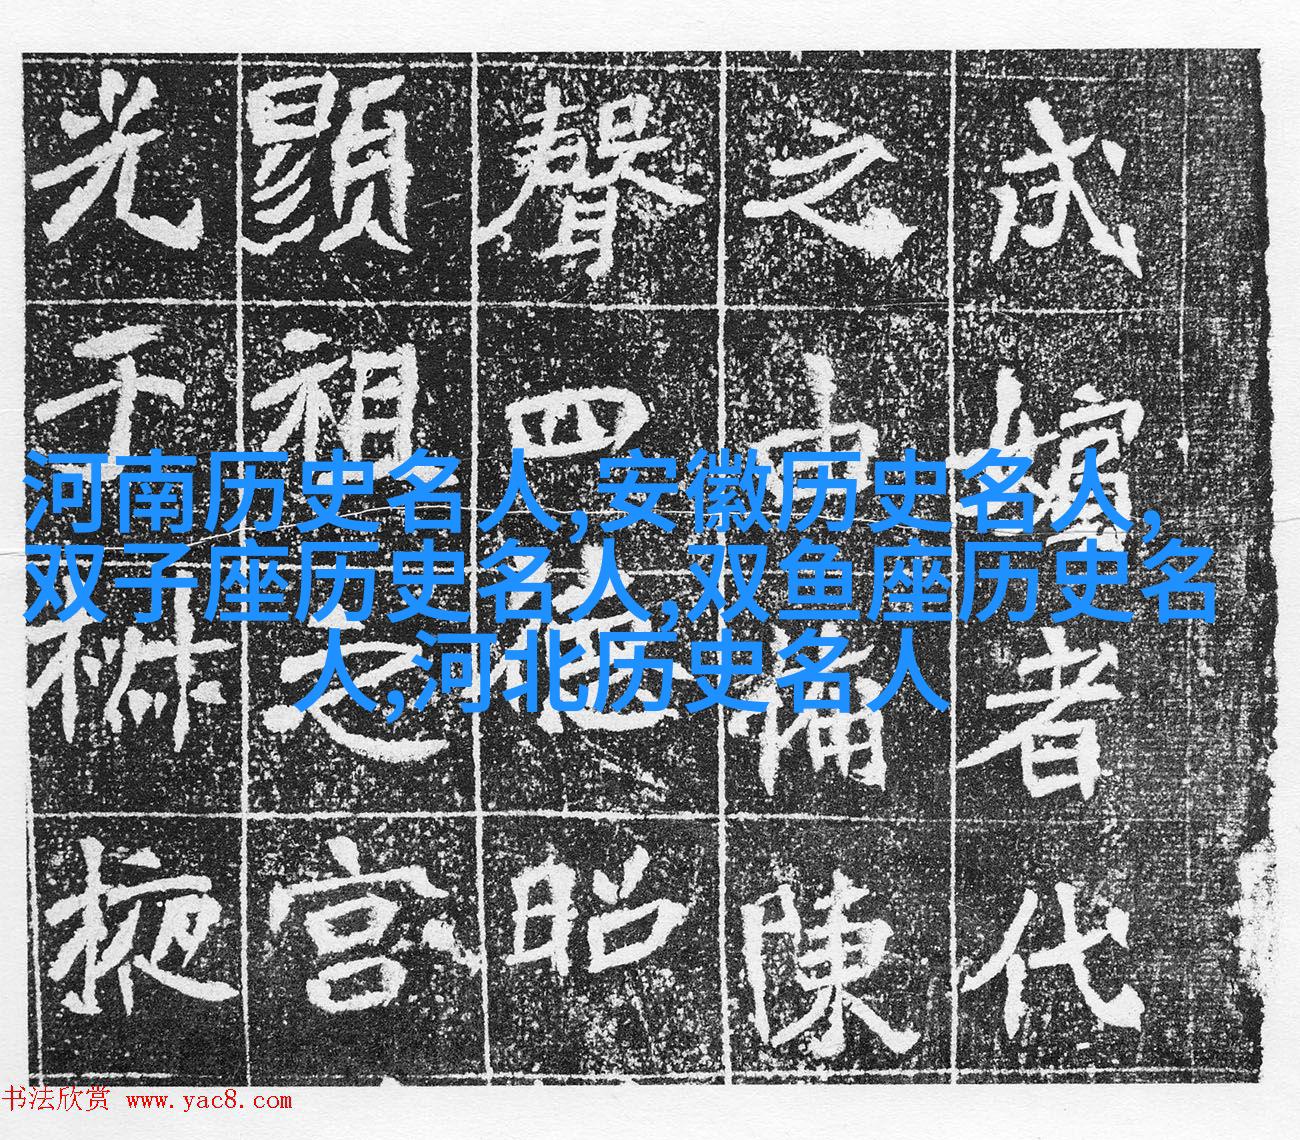 式嬪者代
之由備陳
聲四昭
顯祖之宮
光于椒掖
河南历史名人,安徽历史名人,
双子座历史名人,双鱼座历史名
人,河北历史名人
书法欣赏 www.yac8.com